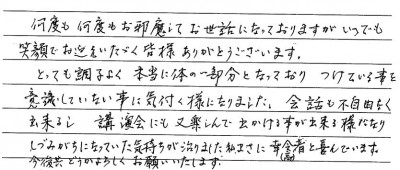 何度も何度もお邪魔してお世話になっておりますがいつでも
笑顔でお迎えいただく皆様ありがとうございます。
とっても調子よく本当に体の一部分となっておりつけている事を
意識していない事に気付く様になりました。会話も不自由なく
出来るし 講演会にも又楽しんで出かける事が出来る様になり
しづみがちになっていた気持ちが治りました 私まさに幸福者と喜んでいます。
今後共どうかよろしくお願いいたします。